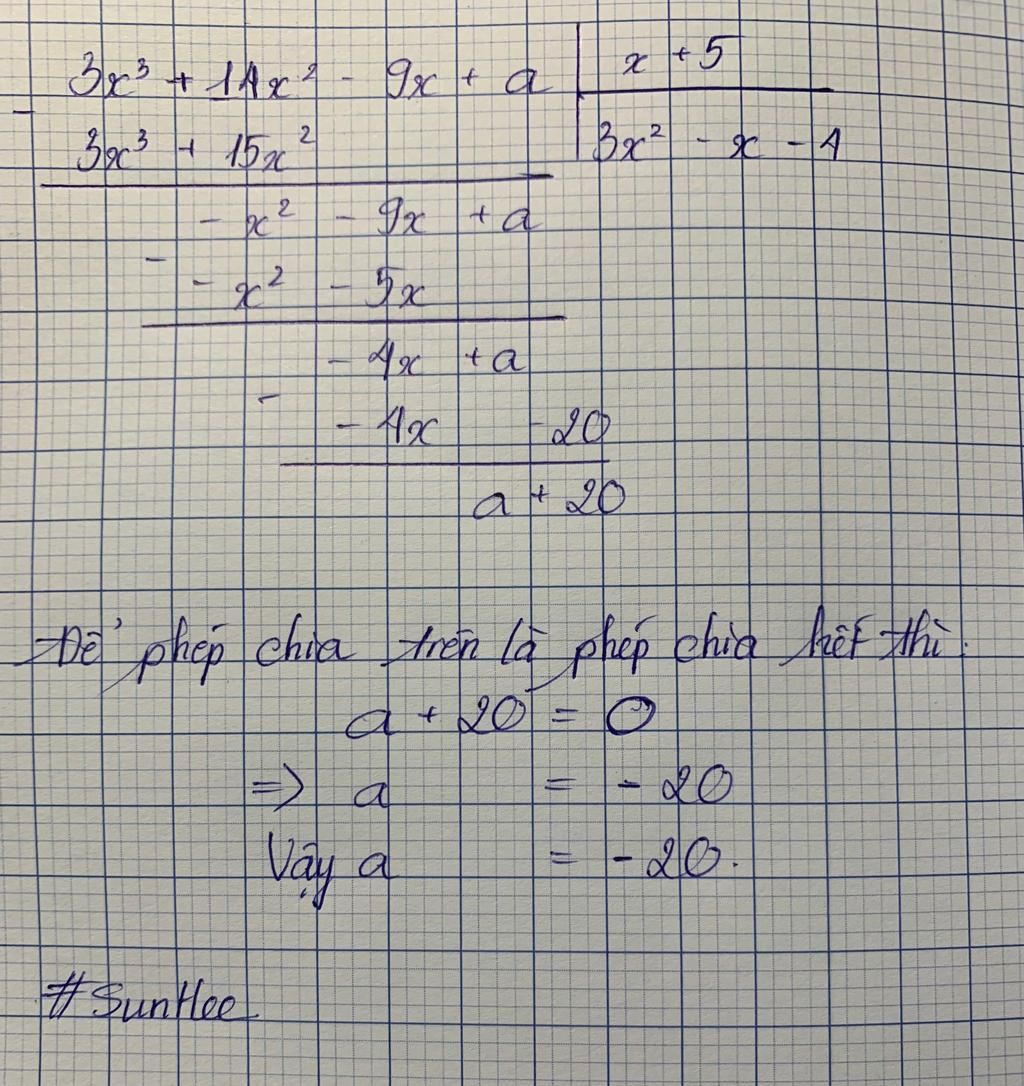 3x³ + 14x² - 9x + a | x + 5
- 3x³ + 15x² | 3x² - x - 4
- x² - 9x + a
- - x² - 5x
- 4x + a
- - 4x - 20
a + 20
Để phép chia trên là phép chia hết thì:
a + 20 = 0
=> a = - 20
Vậy a = - 20.
#SunHee